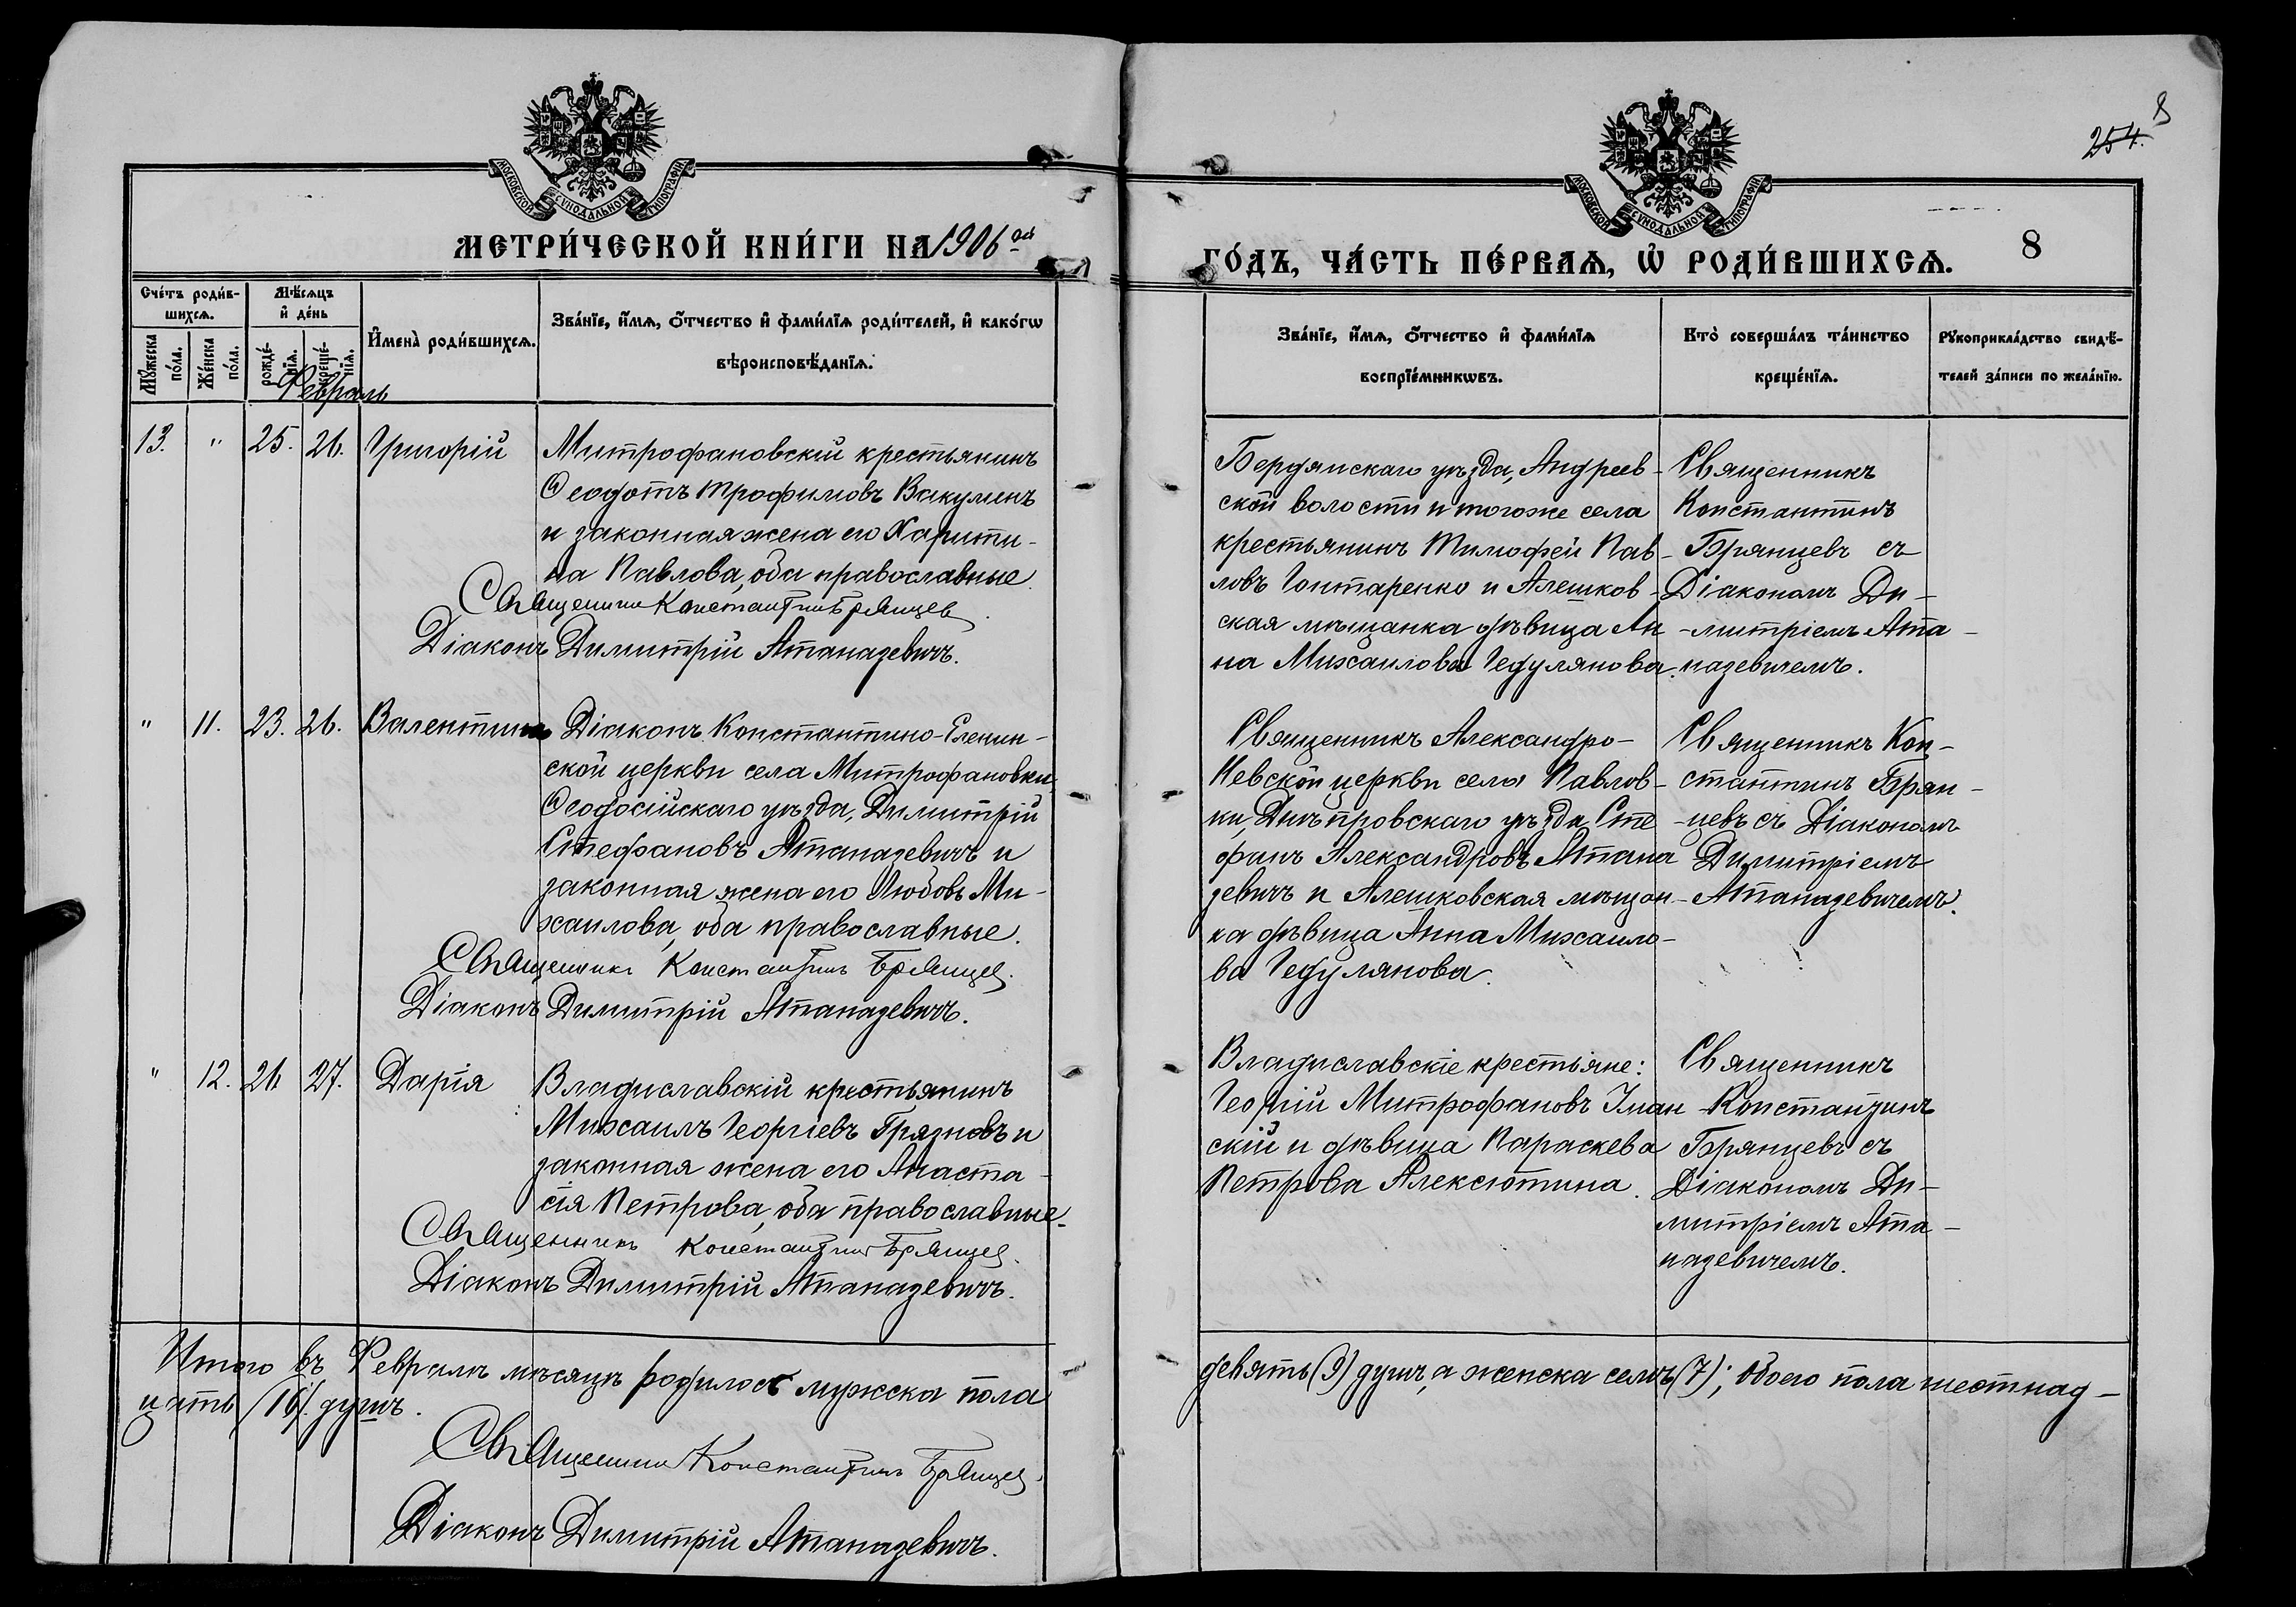 254. 8
МОСКОВСКОЙ СУНОДАЛЬНОЙ ТИПОГРАФІИ
МОСКОВСКОЙ СУНОДАЛЬНОЙ ТИПОГРАФІИ
МЕТРИ́ЧЕСКОЙ КНИ́ГИ НА 1906ой
ГО́ДЪ, ЧА́СТЬ ПЕ́РВАѦ, Ѡ҆ РОДИ́ВШИХСѦ. 8
Сче́тъ роди́в-
шихсѧ.
Мꙋ́жеска
по́ла.
Же́нска
по́ла.
Мѣ́сѧцъ
и҆ де́нь
рожде́-
нїѧ.
креще́-
нїѧ.
Февраль
И҆мена̀ роди́вшихсѧ.
Зва́нїе, и҆́мѧ, ѻ҆́тчество и҆ фами́лїѧ роди́телей, и҆ како́гѡ
вѣроисповѣ́данїѧ.
Зва́нїе, и҆́мѧ, ѻ҆́тчество и҆ фами́лїѧ
воспрїе́мникѡвъ.
Кто̀ соверша́лъ та́инство
креще́нїѧ.
Рꙋкоприкла́дство свидѣ́-
телей за́писи по жела́нїю.
13. " 25. 26. Григорій
Митрофановскій крестьянинъ
Ѳеодотъ Трофимовъ Вакуленъ
и законная жена его Харити-
на Павлова, оба православные.
Священникъ Константинъ Брянцев.
Діаконъ Димитрій Атаназевичъ.
Бердянскаго уѣзда, Андреев-
ской волости и тогоже села
крестьянинъ Тимофей Пав-
ловъ Гонтаренко и Алешков-
ская мѣщанка дѣвица Ан-
на Михаилова Чедулянова.
Священникъ
Константинъ
Брянцевъ съ
Діакономъ Ди-
митріемъ Ата-
назевичемъ.
" 11. 23. 26. Валентина
Діаконъ Константино-Еленин-
ской церкви села Митрофановки,
Ѳеодосійскаго уѣзда, Димитрій
Стефановъ Атаназевичъ и
законная жена его Любовь Ми-
хаилова, оба православные.
Священникъ Константинъ Брянцев.
Діаконъ Димитрій Атаназевичъ.
Священникъ Александро-
Невской церкви села Павлов-
ки, Днѣпровскаго уѣзда Сте-
фанъ Александровъ Атана
зевичъ и Алешковская мѣщан-
ка дѣвица Анна Михаило-
ва Чедулянова.
Священникъ Кон-
стантинъ Брян-
цевъ съ Діакономъ
Димитріемъ
Атаназевичемъ.
" 12. 26 27. Дарія
Владиславскій крестьянинъ
Михаилъ Георгіевъ Грязновъ и
законная жена его Анаста-
сія Петрова, оба православные.
Священникъ Константинъ Брянцев.
Діаконъ Димитрій Атаназевичъ.
Владиславскіе крестьяне:
Георгій Митрофановъ Уман-
скій и дѣвица Параскева
Петрова Алексютина.
Священникъ
Константинъ
Брянцевъ съ
Діакономъ Ди-
митріемъ Ата-
назевичемъ.
Итого въ Февралѣ мѣсяцѣ родилось мужска пола
девять (9) душъ, а женска семь (7); обоего пола шестнад-
цать (16) душъ.
Священникъ Константинъ Брянцев.
Діаконъ Димитрій Атаназевичъ.